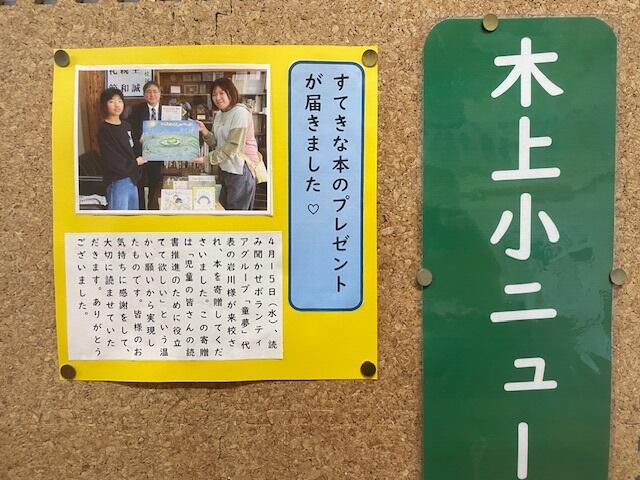 木上小ニュー
すてきな本のプレゼント
が届きました♡
4月15日(水)、読
み聞かせボランティ
アグループ「童夢」代
表の岩川様が来校さ
れ、本を寄贈してくだ
さいました。この寄贈
は「児童の皆さんの読
書推進のために役立
てて欲しい」という温
かい願いから実現し
たものです。皆様のお
気持ちに感謝をして、
大切に読ませていた
だきます。ありがとう
ございました。